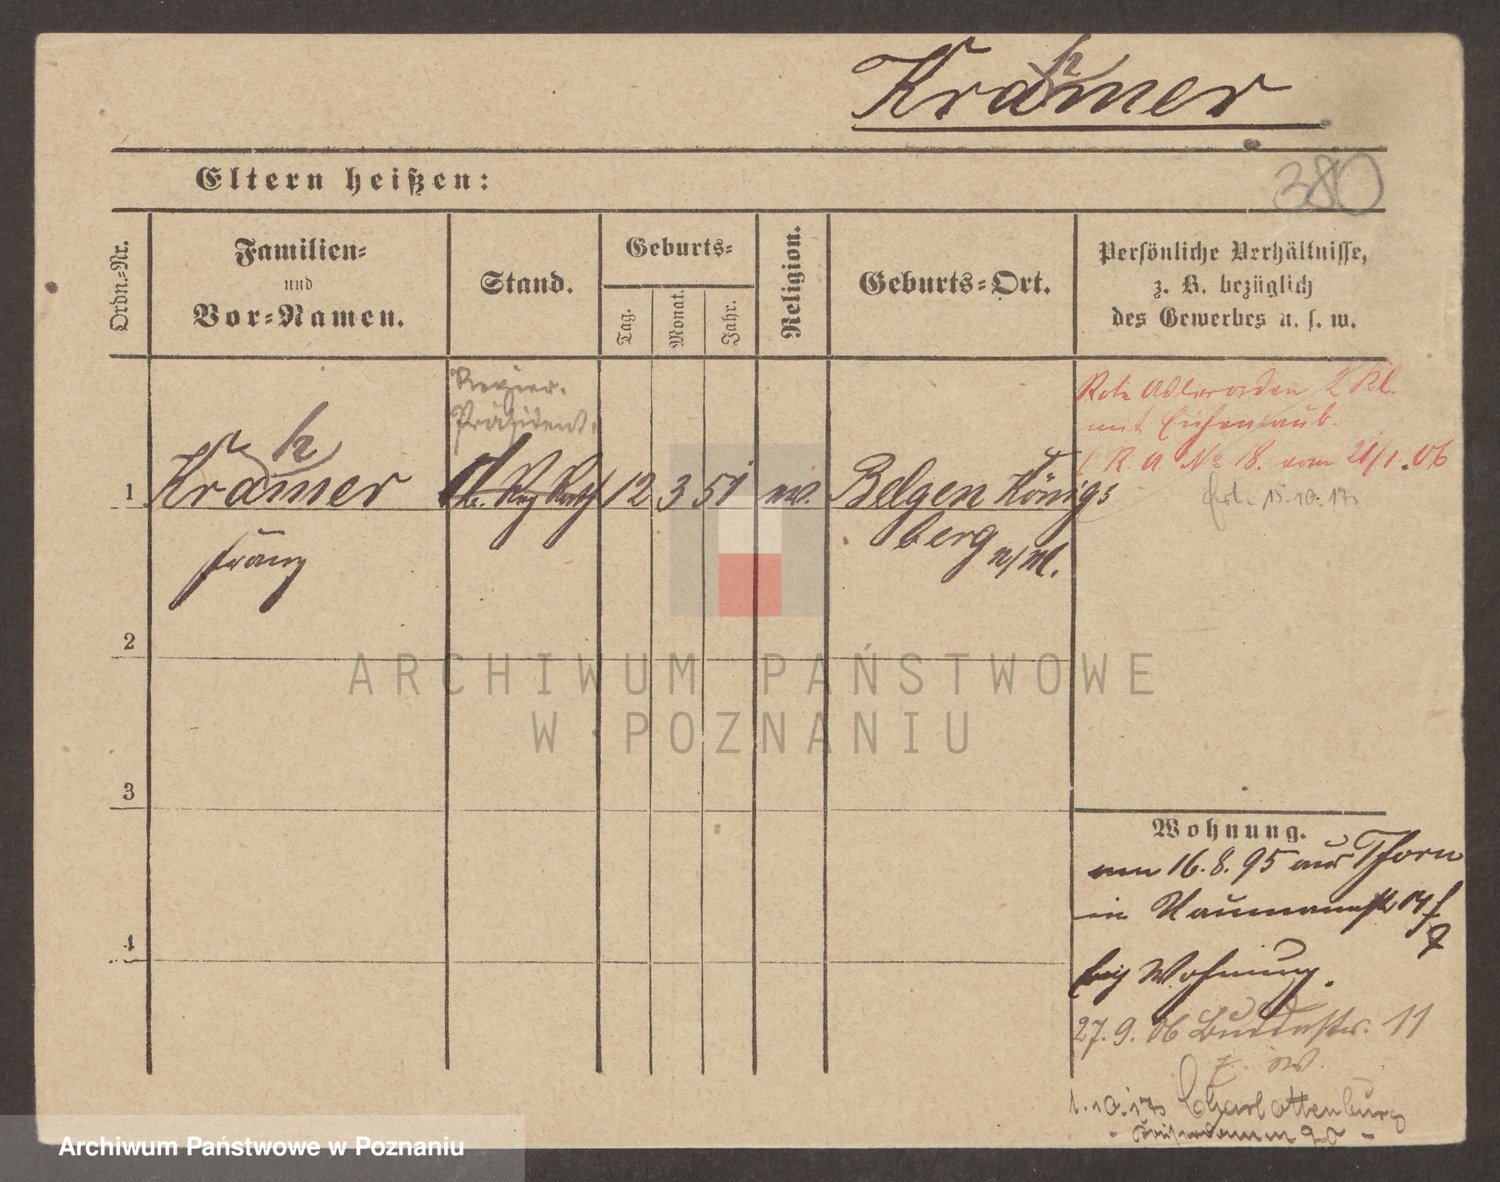 Krähmer
380
Eltern heißen:
Ordn.-Nr.
Familien-
und
Vor-Namen.
Stand.
Geburts-
Tag.
Monat.
Jahr.
Religion.
Geburts-Ort.
Persönliche Verhältnisse,
z. B. bezüglich
des Gewerbes u. s. w.
Präsident.
Rote Adlerorden 2 Kl.
mit Eichenlaub
R. A. No 18. vom 21/1.06
15.10.17
1 Krähmer
Franz
12 3 51
ev.
Belgen Königs
berg n/M.
2
3
4
Wohnung.
am 16.8.95 aus Thorn
in Naumannstr
Wohnung.
27.9.06 Buddestr. 11
z. W.
1.10.17 Charlottenburg
ARCHIWUM PAŃSTWOWE
W POZNANIU
Archiwum Państwowe w Poznaniu